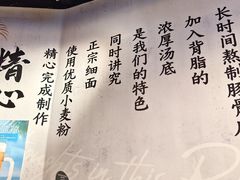 长时间熬制豚骨
加入背脂的
浓厚汤底
是我们的特色
同时讲究
正宗细面
使用优质小麦粉
精心完成制作
精心